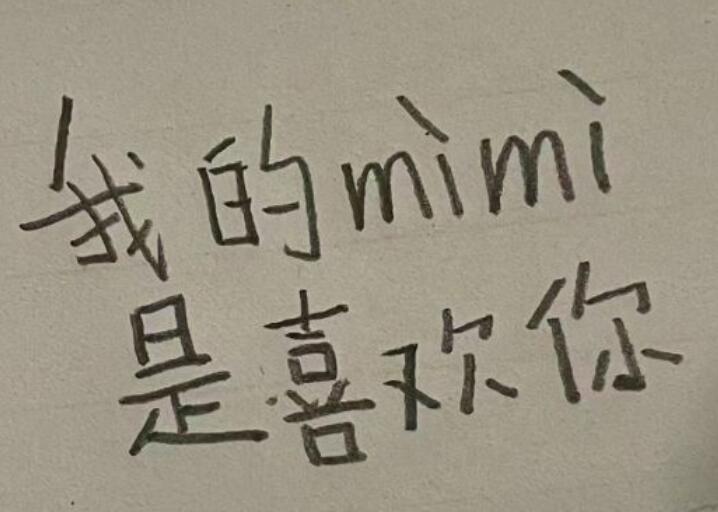 我的mìmì
是喜欢你